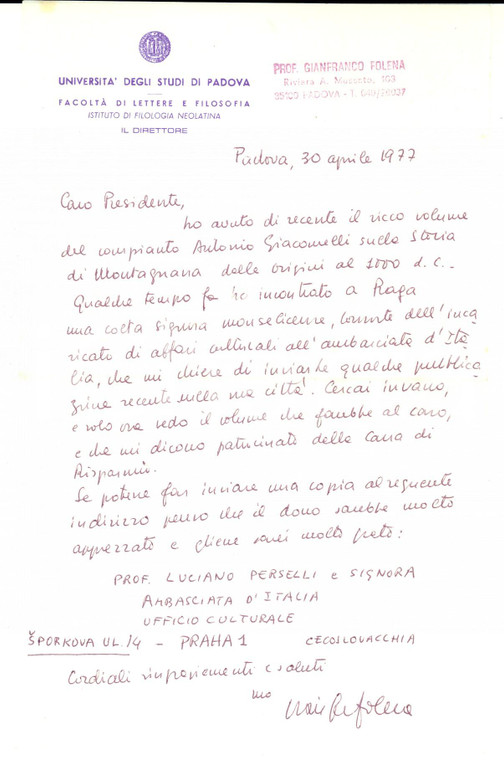 UNIVERSITA' DEGLI STUDI DI PADOVA
FACOLTÀ DI LETTERE E FILOSOFIA
ISTITUTO DI FILOLOGIA NEOLATINA
IL DIRETTORE
PROF. GIANFRANCO FOLENA
Riviera A. Mussato, 103
35100 PADOVA - T.
Padova, 30 aprile 1977
Caro Presidente,
ho avuto di recente il ricco volume
del compianto Antonio Giacomelli sulla Storia
di Montagnana dalle origini al 1000 d.C.-
Qualche tempo fa ho incontrato a Praga
una colta signora monselicense, consorte dell'inca
ricato di affari culturali all'ambasciata d'Ita
lia, che mi chiese di inviarle qualche pubblica
zione recente sulla sua città. Cercai invano,
e solo ora vedo il volume che farebbe al caso,
e che mi dicono patrocinato dalla Cassa di
Risparmio.
Se potesse far inviare una copia al seguente
indirizzo penso che il dono sarebbe molto
apprezzato e gliene sarei molto grato:
PROF. LUCIANO PERSELLI e SIGNORA
AMBASCIATA D'ITALIA
UFFICIO CULTURALE
ŠPORKOVA UL. 14 - PRAHA 1 CECOSLOVACCHIA
Cordiali ringraziamenti e saluti
suo
Gianfranco Folena